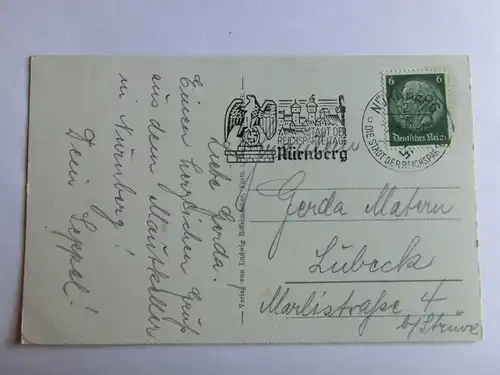 Liebe Gerda.
Einen herzlichen Gruß
aus dem Mautkeller
in Nürnberg!
Dein Seppel!
STADT DER
REICHSPARTEITAGE
Nürnberg
6 6
Deutsches Reich
NÜRNBERG
DIE STADT DER REICHSPAR
Gerda Matern
Lübeck
Marlistraße 4
b/Struve
Verlag von Ludwig